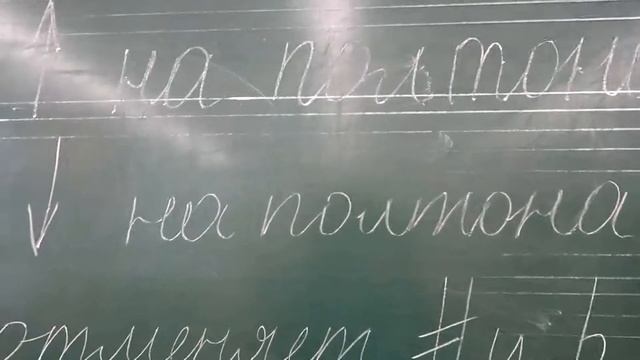 ↑ на польтон
↓ на полтона
отменяет # и b